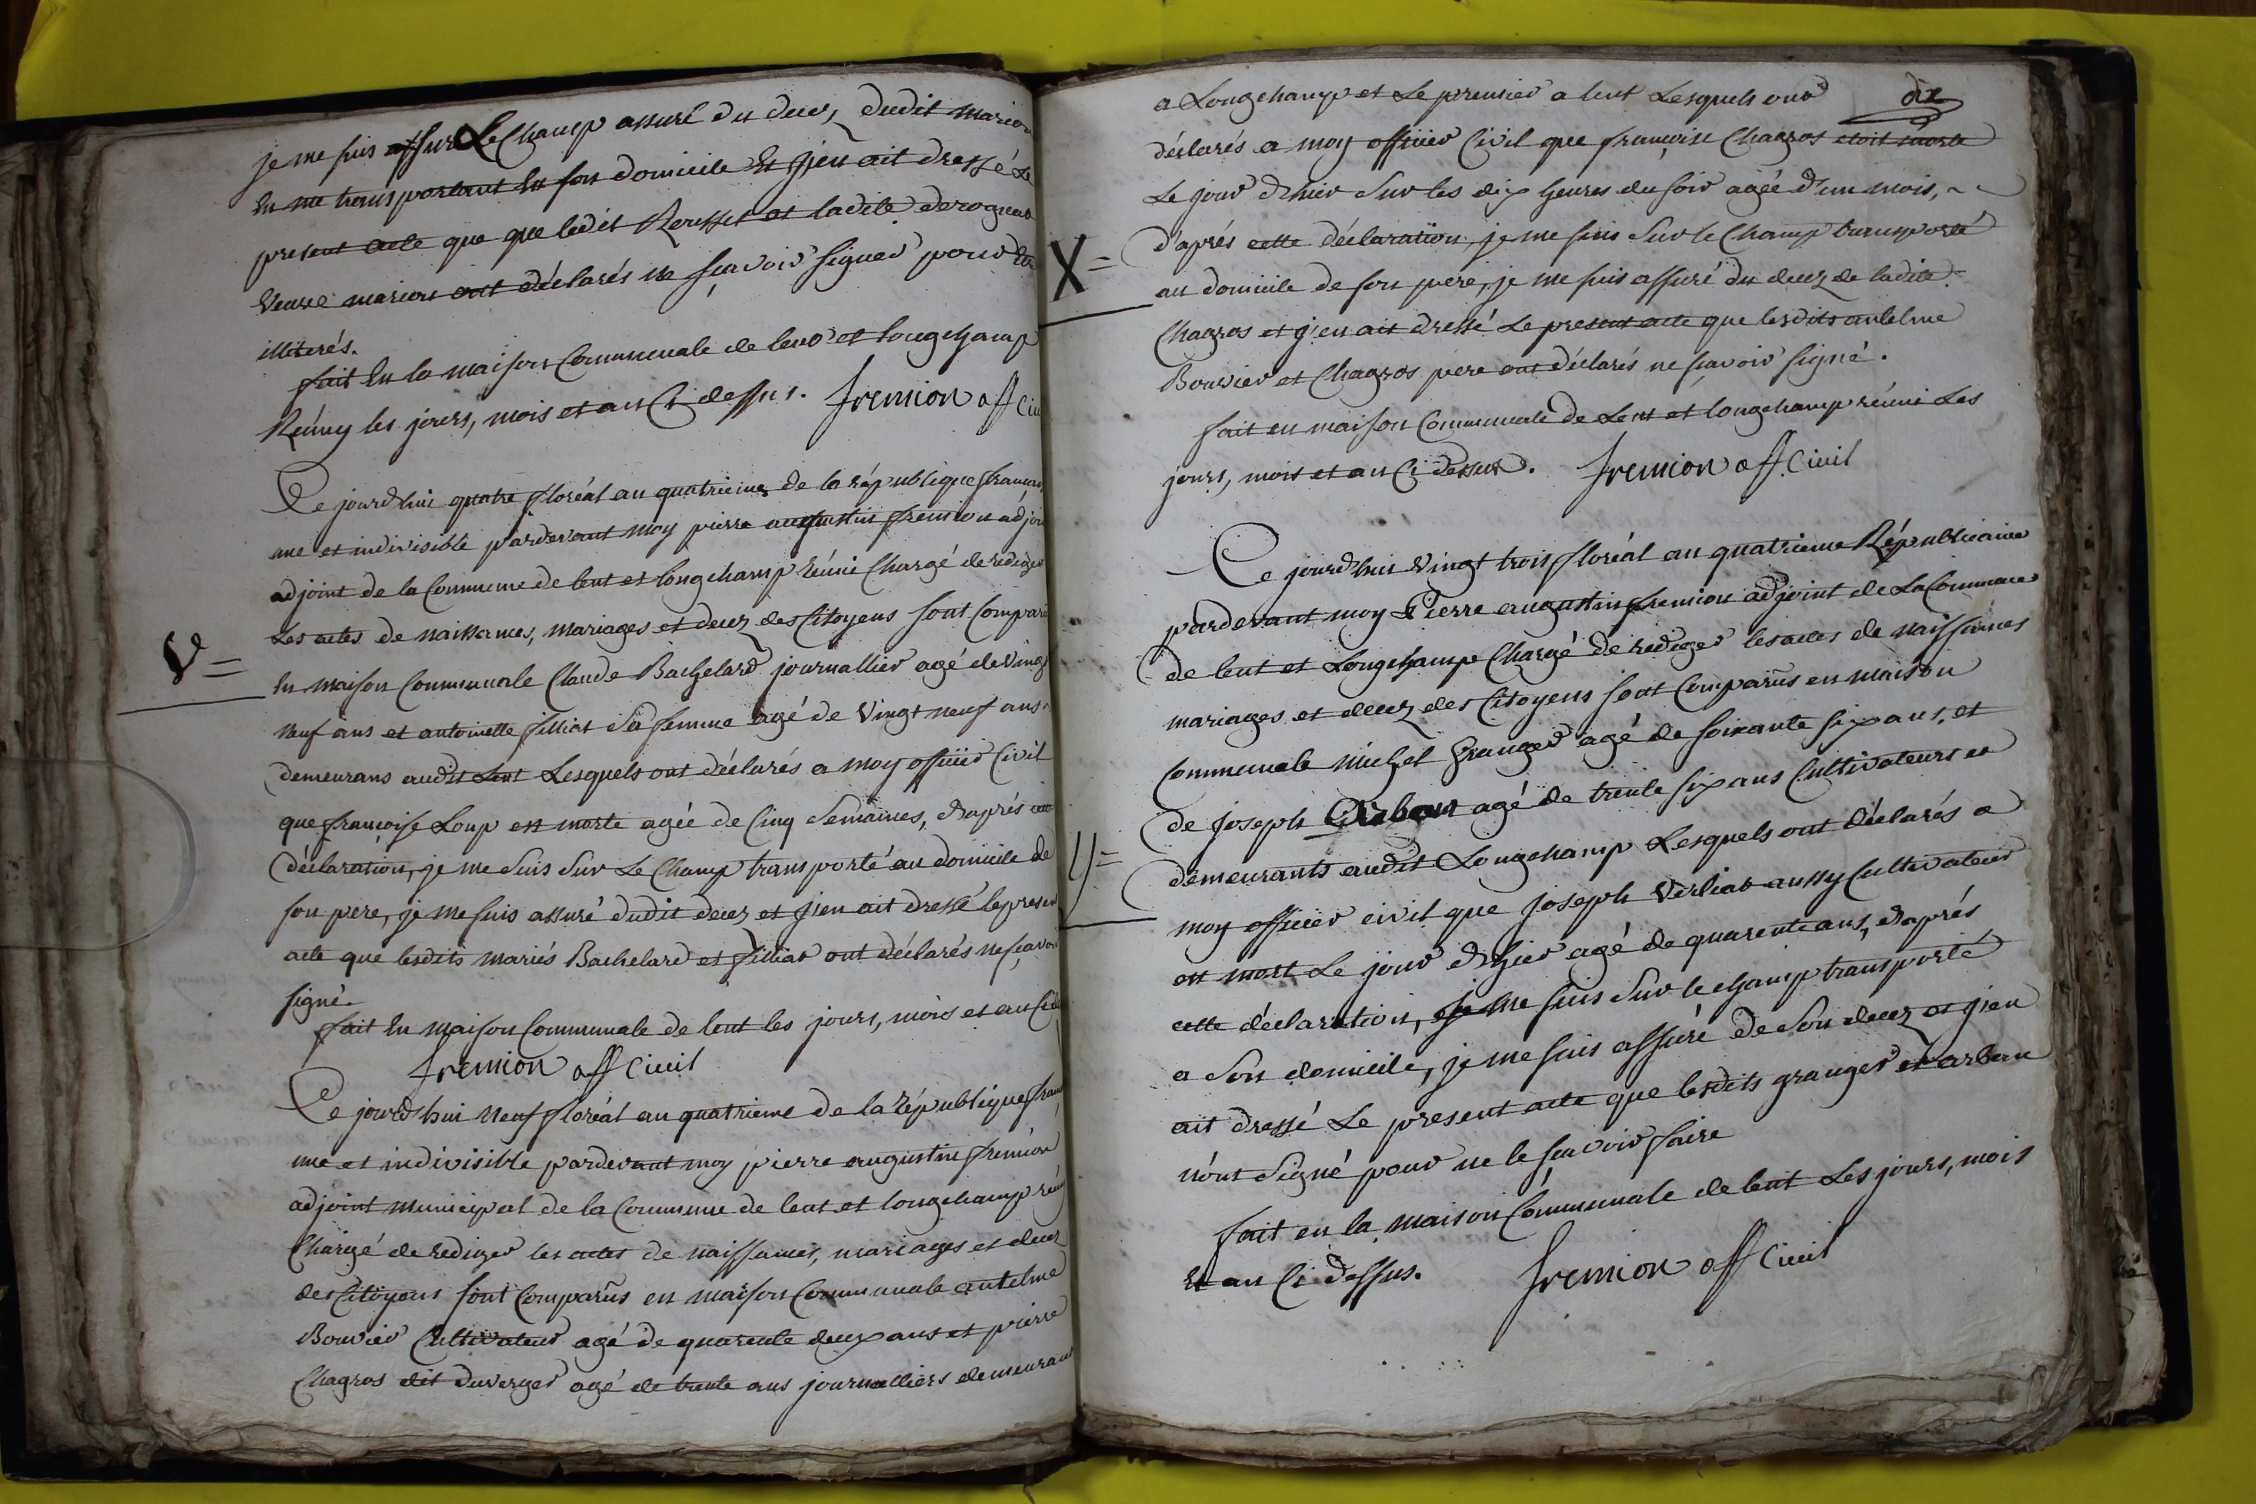 je me suis assur Le Champ assuré du decez dudit marion
En me transportant En son domicile Et j'en ait dressé Le
present acte que que ledit Rousset et ladite derognat
Veuve marion ont déclarés ne sçavoir signer pour Etre
illiterés.
fait En la maison Communale de lent et longchamp
Réuny les jours, mois et an Ci dessus. fremion off Civil
Ce jourdhui quatre floréal an quatrieme de la république francaise
une et indivisible pardevant moy pierre augustin fremion adjoint
adjoint de la Commune de lent et longchamp réuni Chargé de rediger
Les actes de naissances, mariages et decez des Citoyens sont Comparus
V =
En maison Communale Claude Bachelard journallier agé de vingt
neuf ans et antoinette filliat Sa femme agé de vingt neuf ans
demeurans audit Lent Lesquels ont déclarés a moy officier Civil
que francoise Loup est morte agée de Cinq Semaines, d'aprés cette
déclaration, je me Suis Sur Le Champ transporté au domicile de
son pere, je me suis assuré dudit decez et j'en ait dressé le present
acte que lesdits mariés Bachelard et filliat ont déclarés ne sçavoir
signé.
fait En maison Communale de lent les jours, mois et an Ci
fremion off Civil
Ce jourdhui neuf floréal an quatrieme de la république francaise
une et indivisible pardevant moy pierre augustin fremion
adjoint municipal de la Commune de lent et longchamp réuni
Chargé de rediger les actes de naissances, mariages et decez
des Citoyens sont Comparus en maison Communale antelme
Bouvier Cultivateur agé de quarente deux ans et pierre
Chagros dit duverger agé de trente ans journalliers demeurans
dix
a Longchamp et Le premier a lent Lesquels ont
déclarés a moy officier Civil que francoise Chagros etoit morte
Le jour d'hier Sur les dix heures du soir agée d'un mois, ~
X =
d'aprés cette déclaration, je me suis Sur le Champ transporté
au domicile de son pere, je me suis assuré du decez de ladite
Chagros et j'en ait dressé Le present acte que lesdits antelme
Bouvier et Chagros pere ont déclarés ne sçavoir signé.
fait en maison Communale de Lent et longchamp réuni Les
jours, mois et an Ci dessus. fremion off Civil
Ce jourdhui vingt trois floréal an quatrieme Républicaine
pardevant moy Pierre augustin fremion adjoint de La Commune
de lent et Longchamp Chargé de rediger les actes de naissances
mariages et decez des Citoyens sont Comparus en maison
Communale Michel Granger agé de soixante six ans, et
de joseph Arban agé de trente six ans Cultivateurs et
=
demeurants audit Longchamp Lesquels ont déclarés a
moy officier civil que joseph Verliat aussy Cultivateur
est mort Le jour d'hier agé de quarente ans, d'aprés
cette déclaration, je me suis Sur le champ transporté
a Son domicile, je me suis assuré de Son decez et j'en
ait dressé Le present acte que lesdits granger et arban
n'ont Signé pour ne le sçavoir faire
fait en la maison Communale de lent Les jours, mois
Et an Ci dessus. fremion off Civil